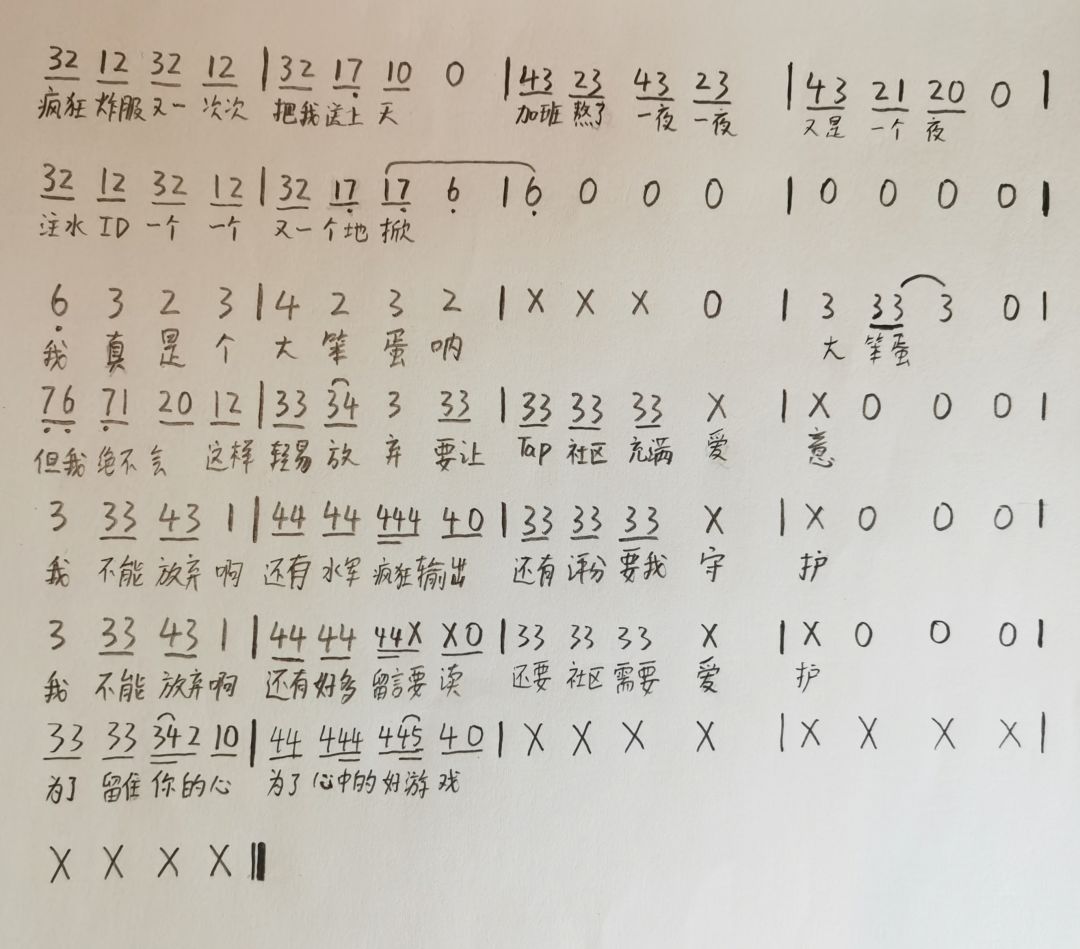 32 12 32 12 | 32 17 10 0 | 43 23 43 23 | 43 21 20 0 |
疯狂 炸服 又一 次次 把我 送上 天 加班 熬了 一夜 一夜 又是 一个 夜
32 12 32 12 | 32 17 17 6 | 6 0 0 0 | 0 0 0 0 |
注水 ID 一个 一个 又一 个地 掀
6 3 2 3 | 4 2 3 2 | X X X 0 | 3 33 3 0 |
我 真 是 个 大 笨 蛋 呐 大 笨蛋
76 71 20 12 | 33 34 3 33 | 33 33 33 X | X 0 0 0 |
但我 绝不 会 这样 轻易 放 弃 要让 Tap 社区 充满 爱 意
3 33 43 1 | 44 44 444 40 | 33 33 33 X | X 0 0 0 |
我 不能 放弃 啊 还有 水军 疯狂输出 还有 评分 要我 守 护
3 33 43 1 | 44 44 44X X0 | 33 33 33 X | X 0 0 0 |
我 不能 放弃 啊 还有 好多 留言要 读 还要 社区 需要 爱 护
33 33 342 10 | 44 444 445 40 | X X X X | X X X X |
为了 留住 你的心 为了 心中的 好游 戏
X X X X ‖